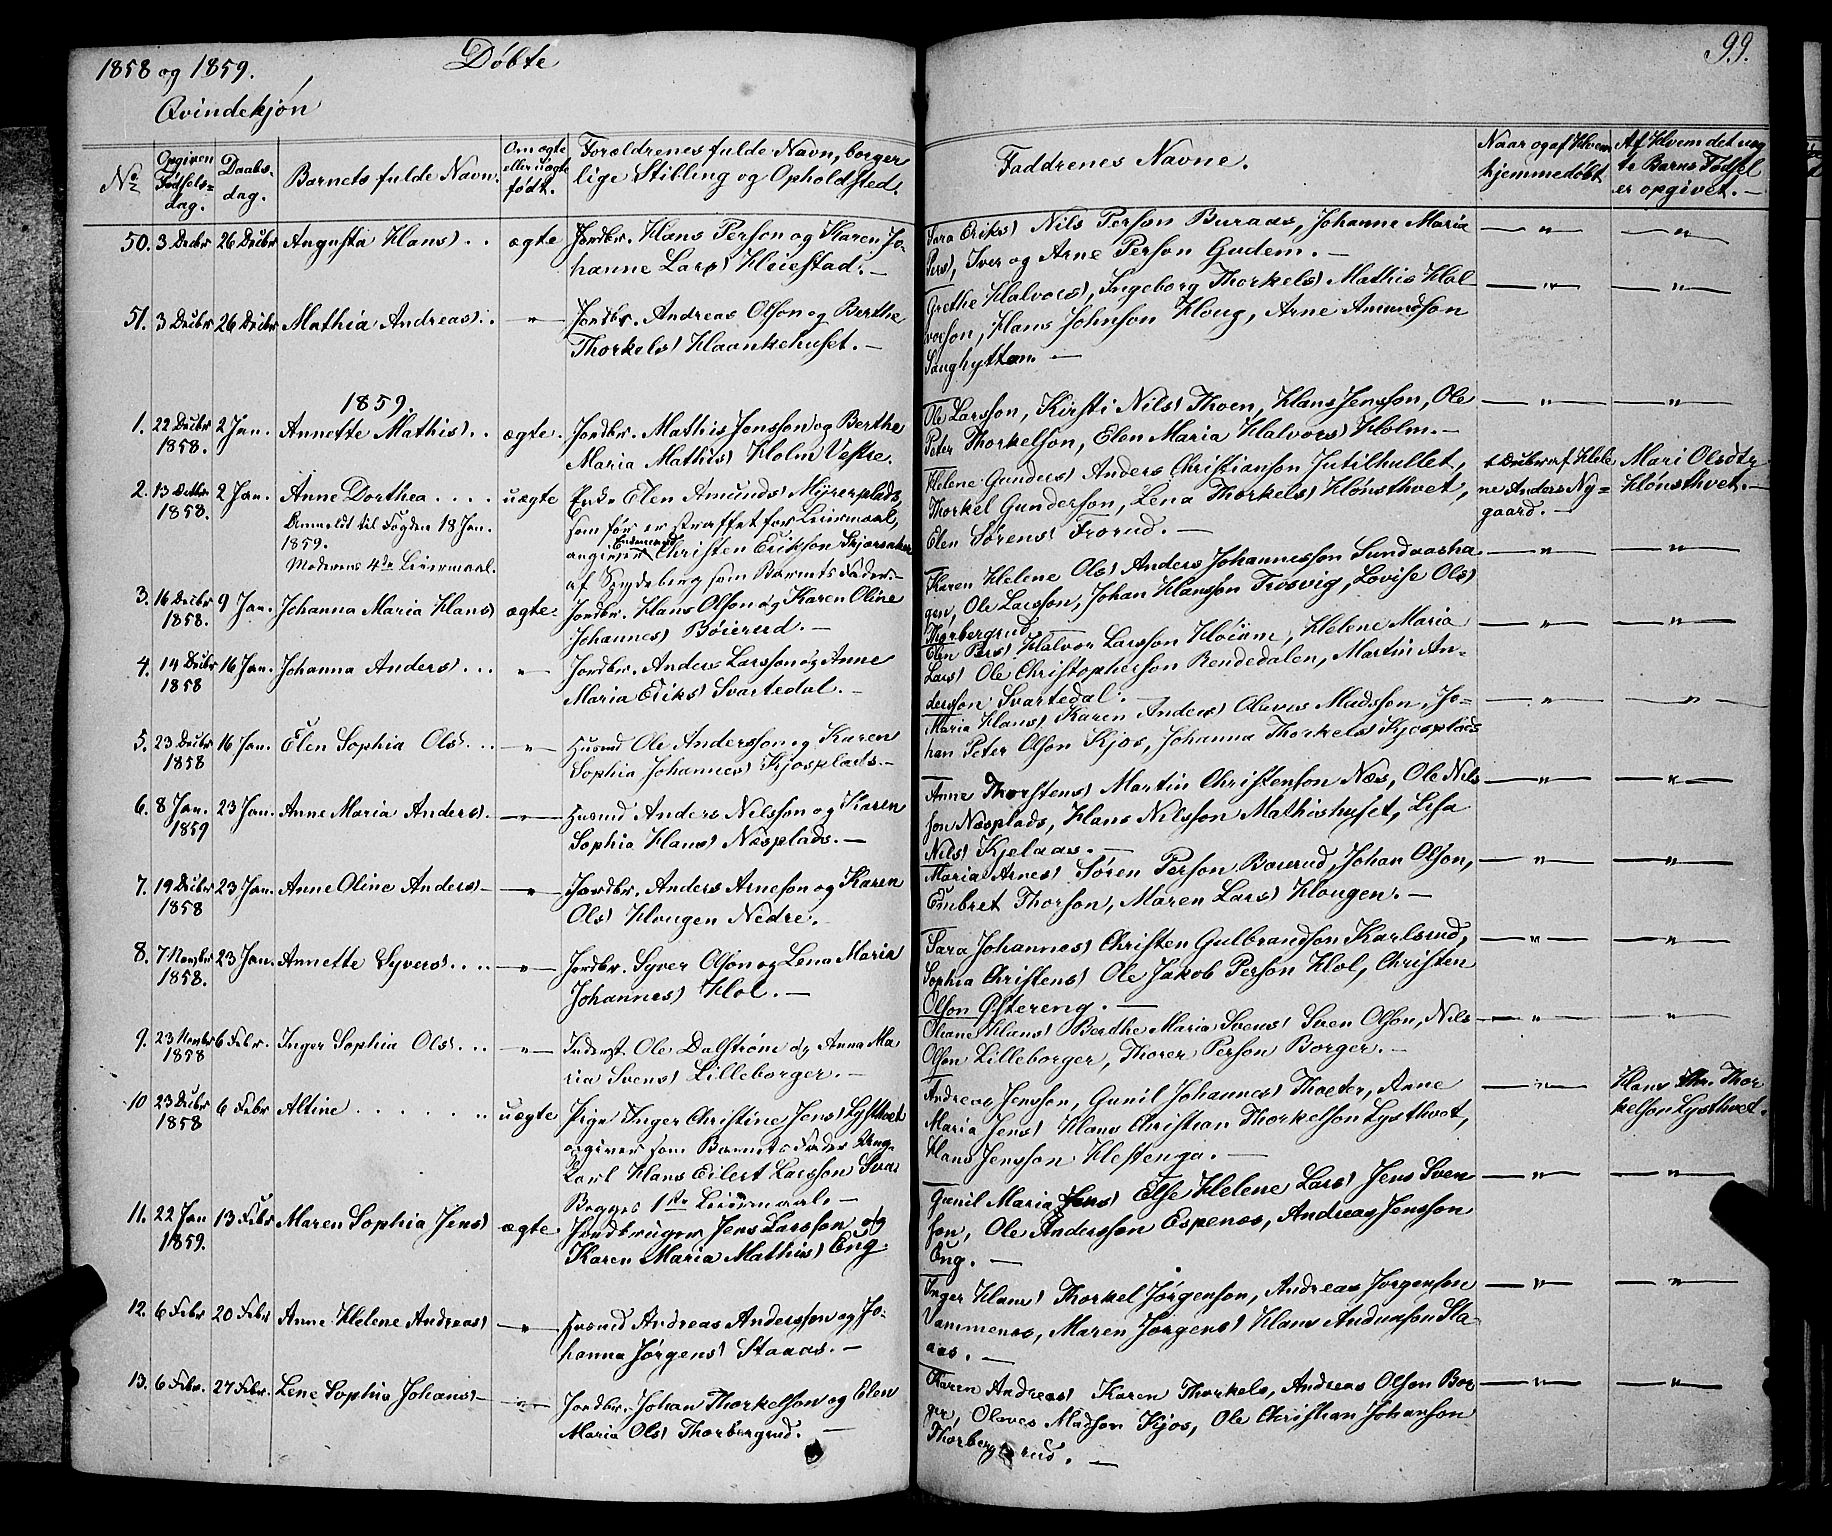 1858 og 1859.
Døbte
99.
Qvindekjøn
No
Opgiven Fødsels=dag.
Daabs=dag.
Barnets fulde Navn.
Om ægte eller uægte født.
Forældrenes fulde Navn, borgerlige Stilling og Opholdsted.
Faddrenes Navne.
Naar og af Hvem hjemmedøbt
Af Hvem det uægte Barns Fødsel er opgivet. —
50. 3 Decbr 26 Decbr Augusta Hans) . . ægte Jordbr. Hans Person og Karen Jo-
hanne Lars) Huiestad. —
Sara Eriks) Nils Person Buraas, Johanne Maria
Pers), Iver og Arne Person Gudem. —
— " —
— " —
51. 3 Decbr 26 Decbr Mathia Andreas) . — " — Jordbr. Andreas Olson og Berthe
Thorkels) Haankehuset. —
Grethe Halvors), Ingeborg Thorkels) Mathis Hal-
vorson, Hans Johnson Houg, Arne Amundson
Saughytten. —
— " —
— " —
1859.
1. 22 Decbr 2 Jan. Annette Mathis) . . ægte. Jordbr. Mathis Jonsson og Berthe
1858. Maria Mathis) Holm Vestre.
Ole Larsson, Kirsti Nils) Thoen, Hans Jensson, Ole
Peter Thorkelson, Elen Maria Halvors) Holm. —
— " —
— " —
2. 13 Octbr 2 Jan. Anne Dorthea . . . . uægte Enke Elen Amunds) Myrerplads,
1858. Anmeldt til Fogden 18 Jan. som før er straffet for Leiermaal,
1859. angiver Ensmand Christen Erikson
Moderens 4de Leiermaal. af Spydeberg som Barnets Fader. —
Helene Gunders) Anders Christianson Jutilhullet,
Thorkel Gunderson, Lena Thorkels) Hønsthvet,
Elen Sørens) Frorud. —
Decbr af Hele
ne Anders) Ny=
gaard. —
Mari Olsdtr
Hønsthvet. —
3. 16 Decbr 9 Jan. Johanna Maria Hans) ægte. Jordbr. Hans Olson og Karen Oline
1858. Johannes) Bøierud. —
Karen Helene Ols) Anders Johannesson Sundvasha-
gen, Ole Larsson, Johan Hansson Trosvig, Lovise Ols)
Thorbergrud
— " —
— " —
4. 14 Decbr 16 Jan. Johanna Anders) . . . — " — Jordbr. Anders Larsson og Anne
1858 Maria Eriks) Svartedal. —
Elen Pers) Halvor Larsson Høium, Helene Maria
Lars) Ole Christopherson Rendedalen, Martin An-
dersson Svartedal. —
— " —
— " —
5. 23 Decbr 16 Jan. Elen Sophia Ols) . . . — " — Husmd Ole Andersson og Karen
1858 Sophia Johannes) Kjosplads. —
Maria Hans) Karen Anders) Olaves Madsson, Jo-
han Peter Olson Kjos, Johanna Thorkels) Kjosplads
— " —
— " —
6. 8 Jan. 23 Jan. Anne Maria Anders) . — " — Husmd Anders Nilsson og Karen
1859 Sophia Hans) Næsplads. —
Anne Thorstens) Martin Christenson Næs, Ole Nils
son Næsplads, Hans Nilsson Mathishuset, Lisa
Nils) Kjelaas. —
— " —
— " —
7. 19 Decbr 23 Jan. Anne Oline Anders) — " — Jordbr. Anders Arneson og Karen
1858 Ols) Hougen Nedre. —
Maria Arnes) Søren Person Boierud, Johan Olson,
Embret Thorson, Maren Lars) Hougen. —
— " —
— " —
8. 7 Novbr 23 Jan. Annette Syvers) . . . . — " — Jordbr. Syver Olson og Lena Maria
1858. Johannes) Hol. —
Sara Johannes) Christen Gulbrandson Karlsrud,
Sophia Christens) Ole Jakob Person Hol, Christen
Olson Østereng. —
— " —
— " —
9. 23 Novbr 6 Febr. Inger Sophia Ols) . . . — " — Inderst. Ole Dalstrøm og Anna Ma
1858 ria Svens) Lilleborger. —
Oliane Hans) Berthe Maria Svens) Sven Olson, Nils
Olson Lilleborger, Thorer Person Borger. —
— " —
— " —
10 23 Decbr 6 Febr Altine . . . . . . . . uægte Pige Inger Christine Jens) Lysthvet
1858 opgiver som Barnets Fader Ung-
karl Hans Eilert Larsson
Begges 1ste Leiermaal. —
Andreas Jensson, Gunil Johannes) Thoeter, Anne
Maria Jens) Hans Christian Thorkelson Lysthvet,
Hans Jensson Hestenga. —
— " —
Hans Chr. Thor
kelson Lysthvet.
11. 22 Jan 13 Febr Maren Sophia Jens) ægte Jordbruger Jens Larsson og
1859. Karen Maria Mathis) Eng.
Gunil Maria Jens) Else Helene Lars) Jens Sven
son, Ole Andersson Espenes, Andreas Jensson
Eng. —
— " —
— " —
12. 6 Febr 20 Febr Anne Helene Andreas) — " — Husmd Andreas Andersson og Jo-
hanna Jørgens) Staaas. —
Inger Hans) Thorkel Jørgenson, Andreas Jorgenson
Vammenes, Maren Jørgens) Hans Andersson Sta-
aas. —
— " —
— " —
13. 6 Febr. 27 Febr. Lene Sophia Johans) — " — Jordbr. Johan Thorkelson og Elen
Maria Ols) Thorbergrud. —
Karen Andreas) Karen Thorkels), Andreas Olson Bor
ger, Olaves Madson Kjos, Ole Christian Johanson
Thorbergsrud. —
— " —
— " —